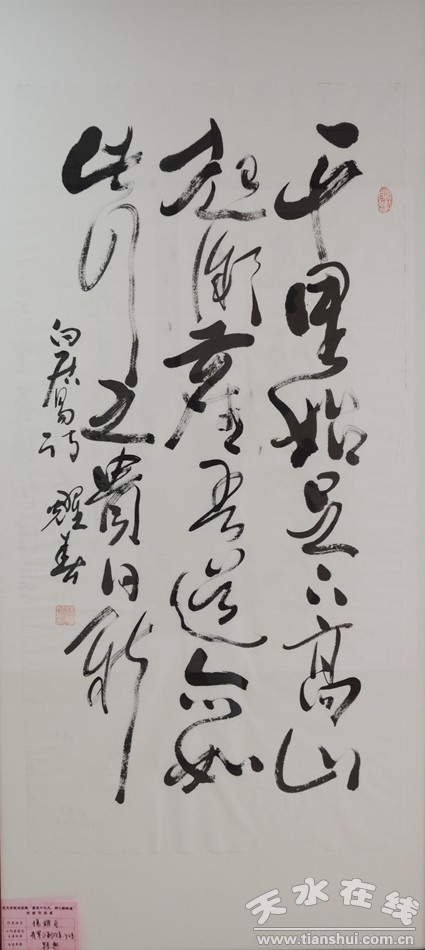 千里始足下高山
起微塵吾道亦如
此行之貴日新
白居易詩 耀春
天水在线
www.tianshui.com.cn